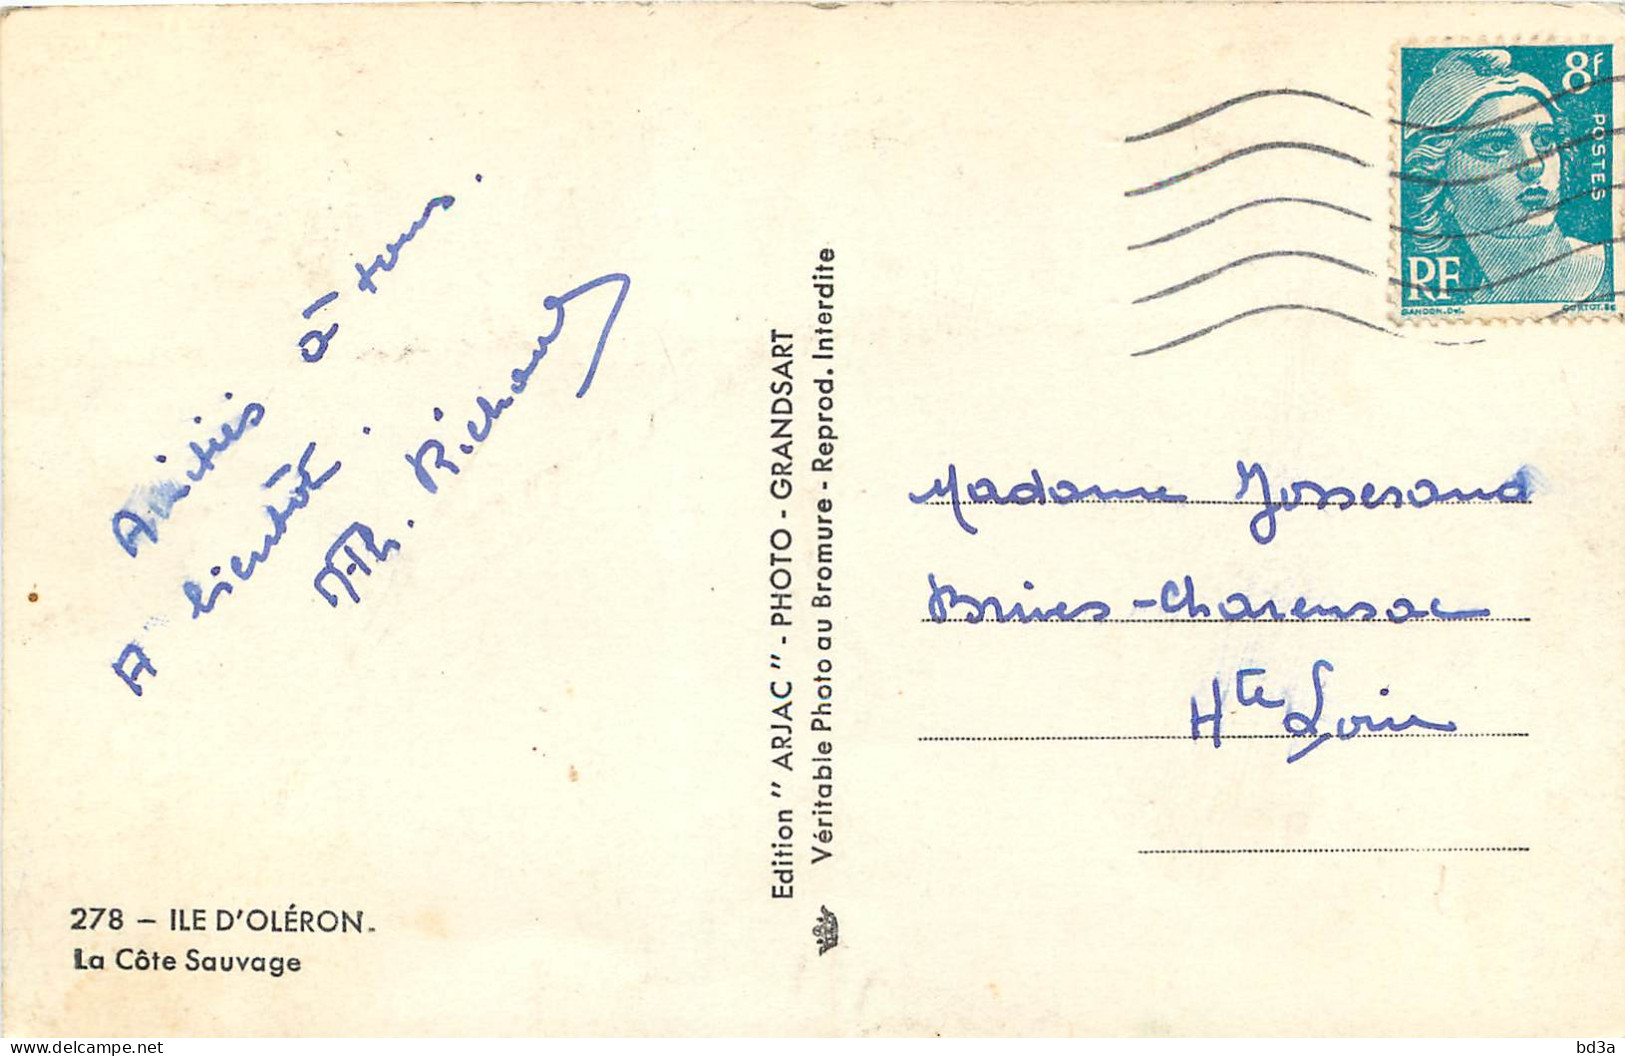 Amitiés à tous.
A bientôt.
M.Th. Richard
278 – ILE D'OLÉRON.
La Côte Sauvage
Edition "ARJAC" - PHOTO - GRANDSART
Véritable Photo au Bromure - Reprod. Interdite
8f
POSTES
RF
GANDON.Del.
CORTOT.SC
Madame Josserand
Brives-Charensac
Hte Loire
delcampe.net
bd3a